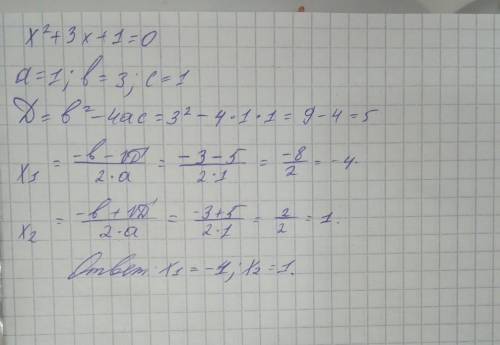 x²+3x+1=0
a=1; b=3; c=1
D=b²-4ac=3²-4·1·1=9-4=5
x₁ = (-b-√D)/(2·a) = (-3-5)/(2·1) = -8/2 = -4.
x₂ = (-b+√D)/(2·a) = (-3+5)/(2·1) = 2/2 = 1.
Ответ: x₁=-4; x₂=1.